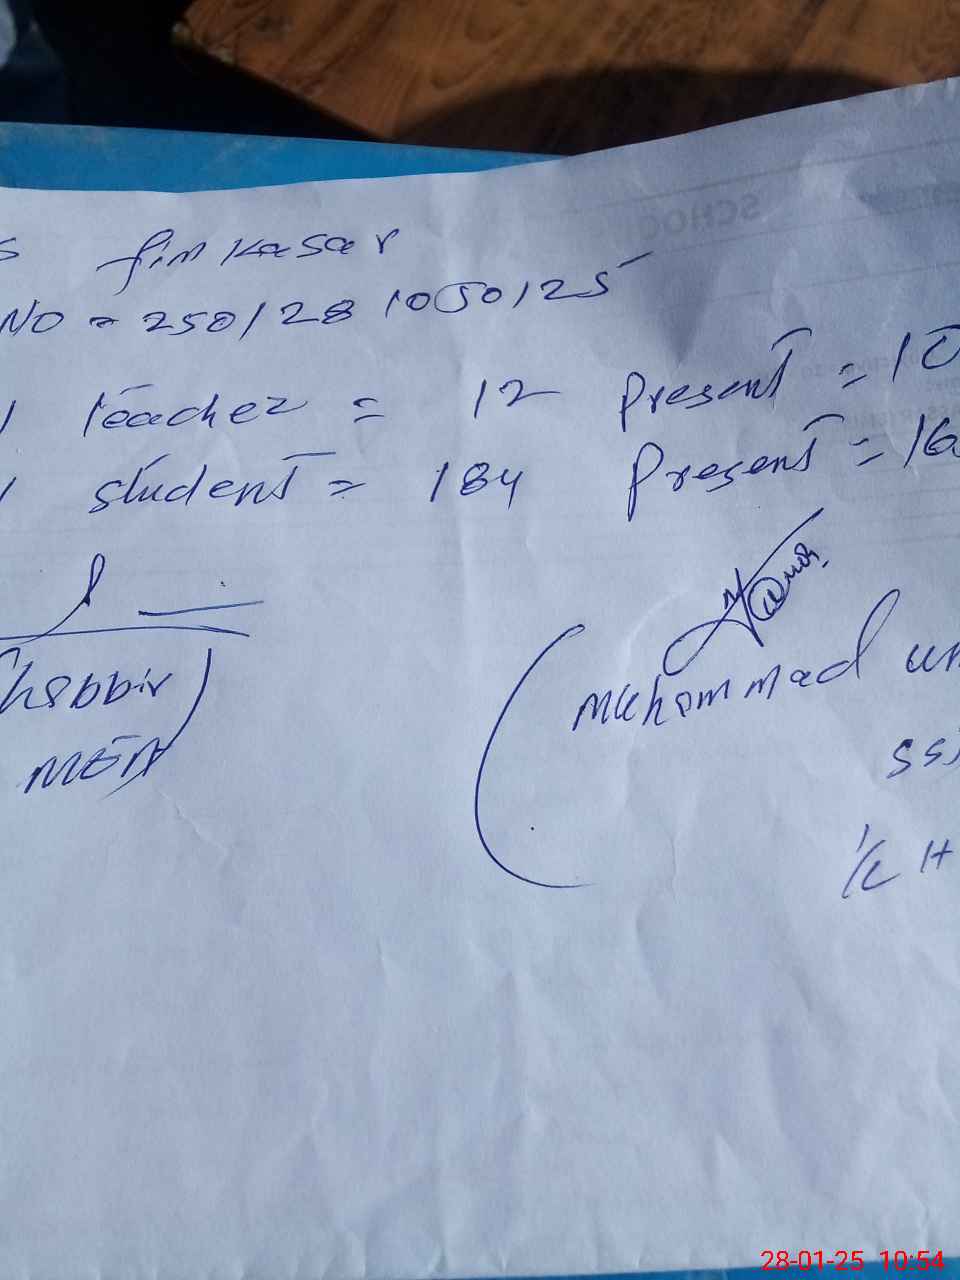 s finkasar
NO = 2501281050125
teacher = 12 Present = 10
student = 184 Present = 16
habbir
MEA
Muhommad um
SSI
K H
SCHOO
28-01-25 10:54